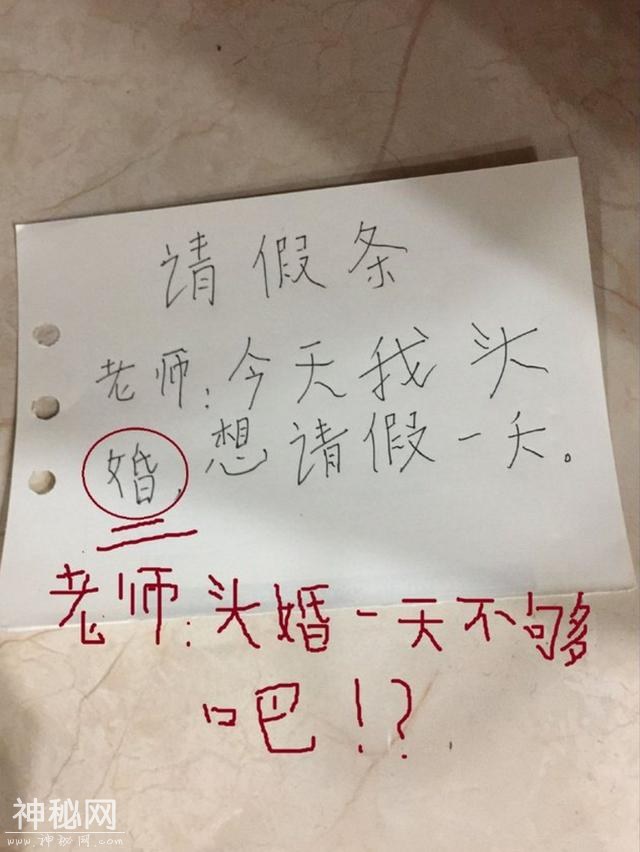 请假条
老师:今天我头
婚,想请假一天。
老师:头婚一天不够
吧!?
神秘网
www.神秘网.com